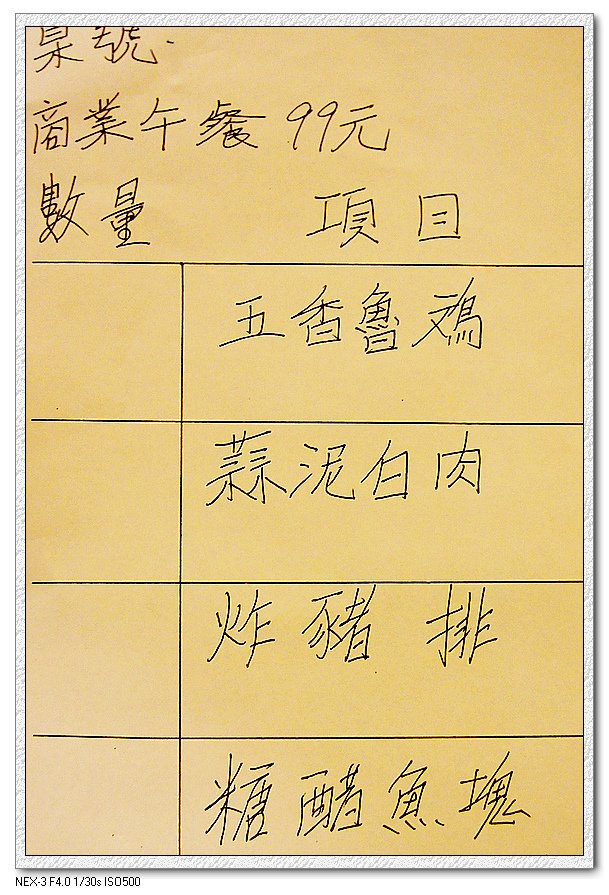 桌號.
商業午餐 99元
數量 項目
五香魯鸡
蒜泥白肉
炸豬排
糖醋魚塊
NEX-3 F4.0 1/30s ISO500